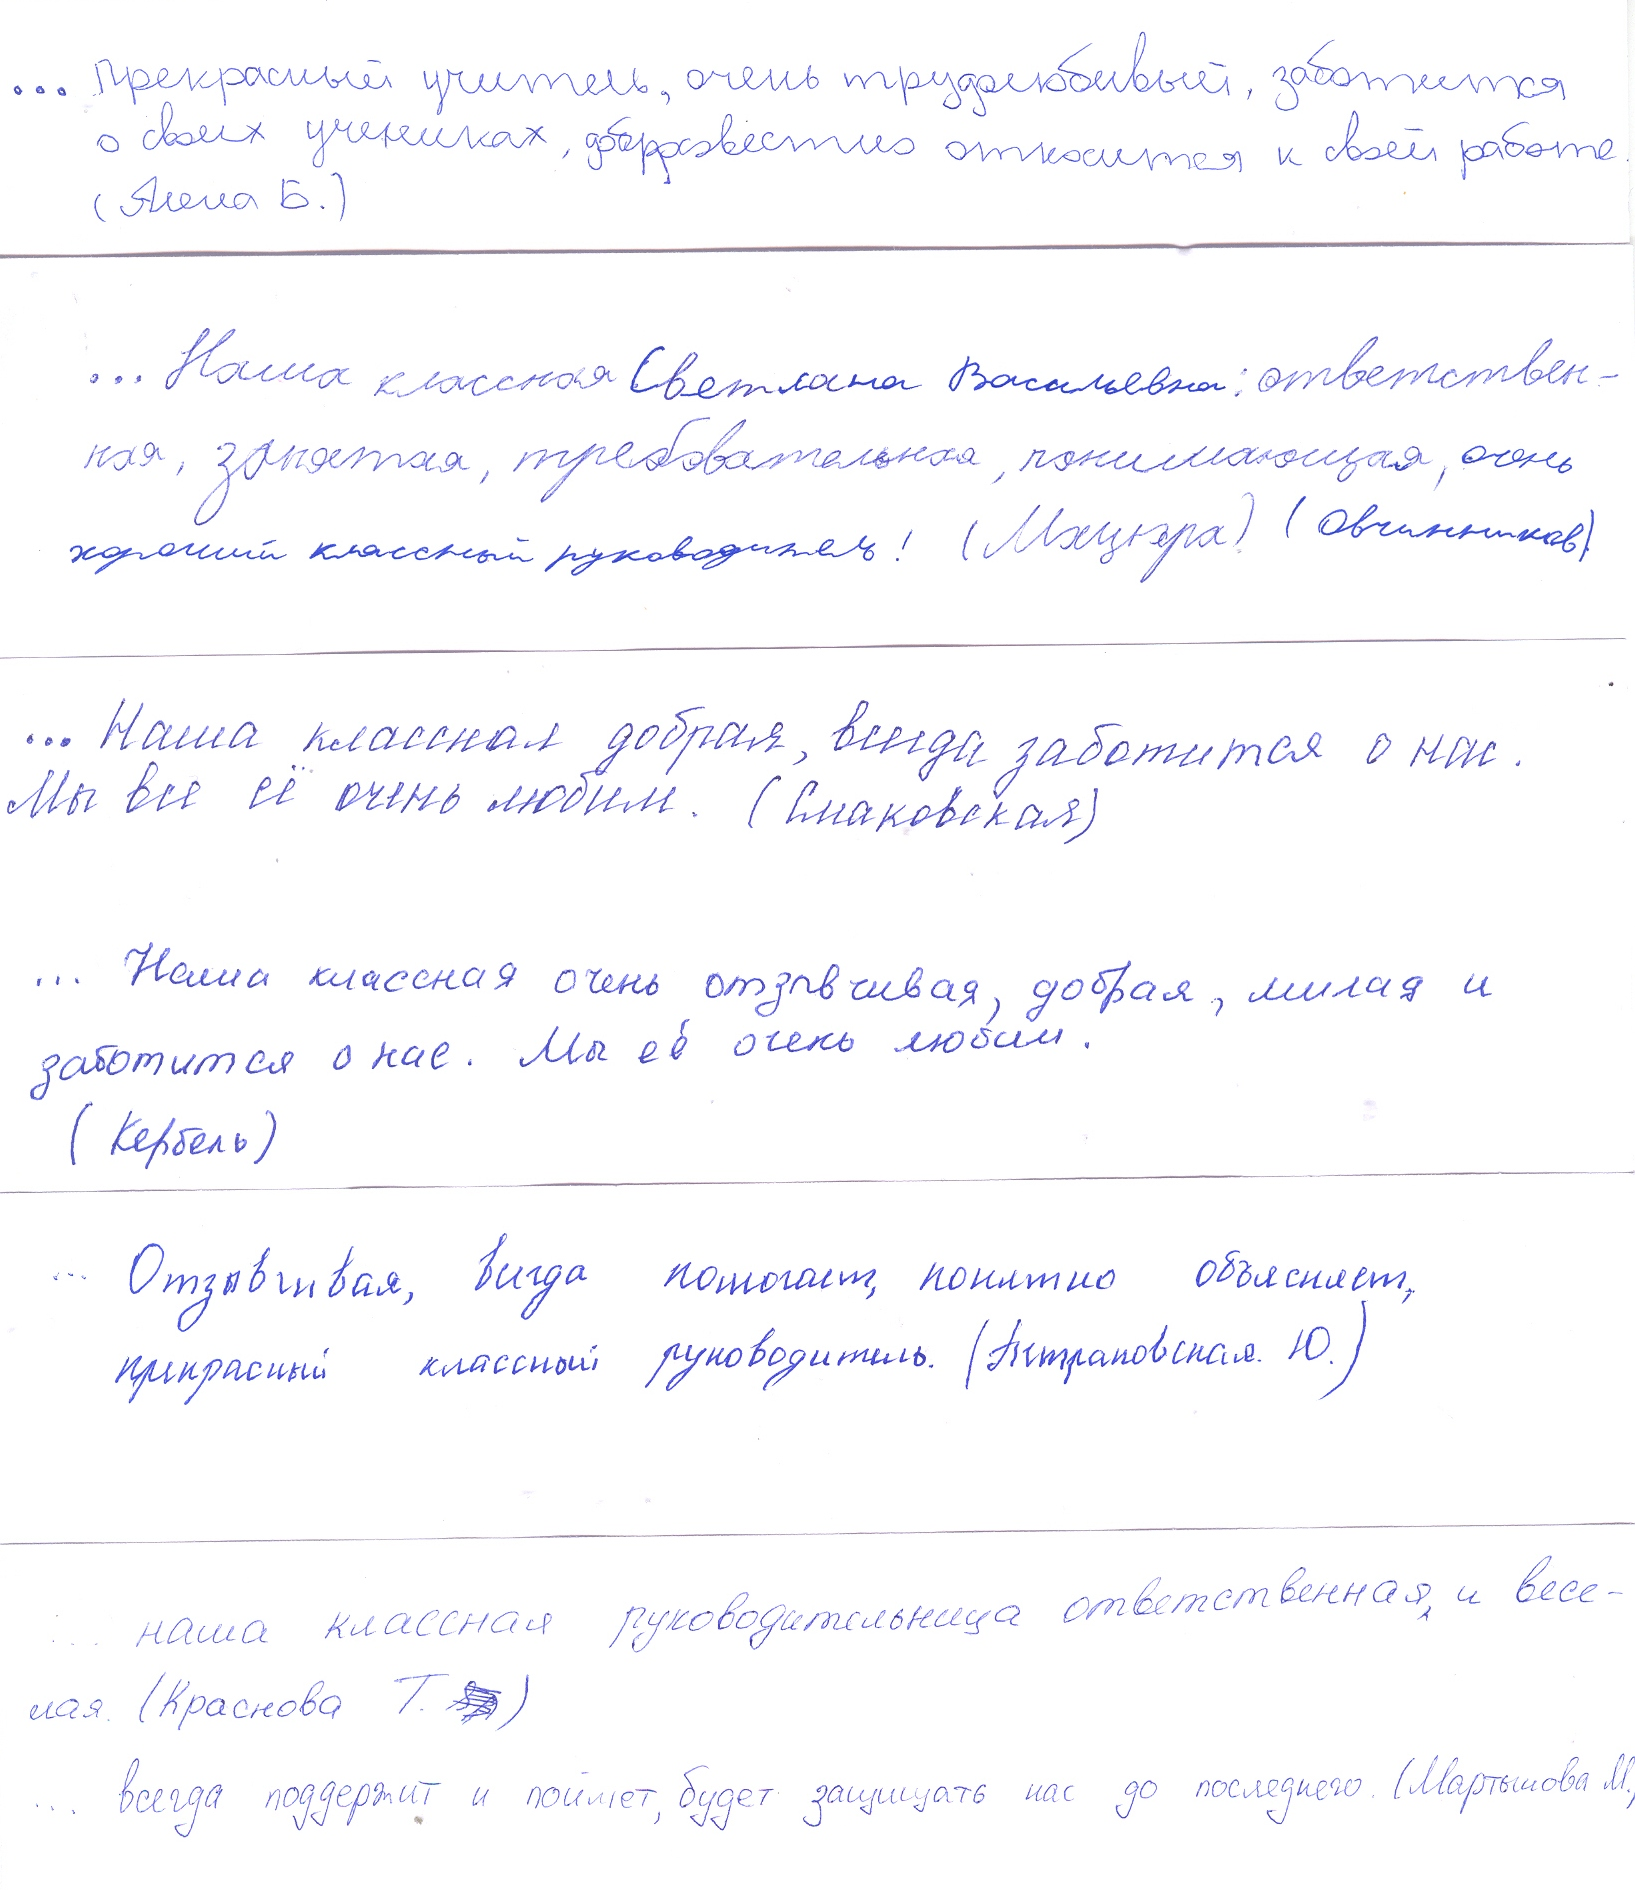 ... Прекрасный учитель, очень трудолюбивый, заботится
о своих учениках, добросовестно относится к своей работе.
(Алена Б.)
... Наша классная Светлана Васильевна: ответствен-
ная, занятая, требовательная, понимающая, очень
хороший классный руководитель! (Мацюра) (Овчинников)
... Наша классная добрая, всегда заботится о нас.
Мы все её очень любим. (Смаковская)
... Наша классная очень отзывчивая, добрая, милая и
заботится о нас. Мы её очень любим.
(Кербель)
... Отзывчивая, всегда помогает, понятно объясняет,
прекрасный классный руководитель. (Петраковская. Ю.)
... наша классная руководительница ответственная, и весе-
лая. (Краснова Т.)
... всегда поддержит и поймет, будет защищать нас до последнего. (Мартынова М.)